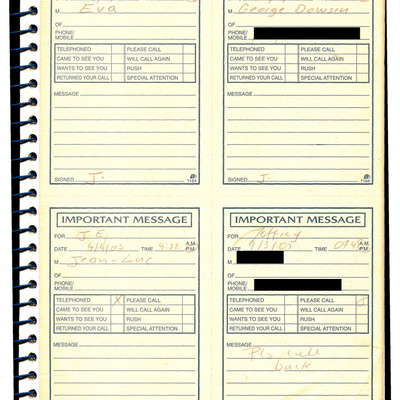 M Eva
OF
PHONE/
MOBILE
TELEPHONED PLEASE CALL
CAME TO SEE YOU WILL CALL AGAIN
WANTS TO SEE YOU RUSH
RETURNED YOUR CALL SPECIAL ATTENTION
MESSAGE
SIGNED J.
1184
M George Dowson
OF
PHONE/
MOBILE
TELEPHONED PLEASE CALL
CAME TO SEE YOU WILL CALL AGAIN
WANTS TO SEE YOU RUSH
RETURNED YOUR CALL SPECIAL ATTENTION
MESSAGE
SIGNED J.
1184
IMPORTANT MESSAGE
FOR J.E.
DATE 4/4/05 TIME A.M.
P.M.
M Jean-Luc
OF
PHONE/
MOBILE
TELEPHONED X PLEASE CALL
CAME TO SEE YOU WILL CALL AGAIN
WANTS TO SEE YOU RUSH
RETURNED YOUR CALL SPECIAL ATTENTION
MESSAGE
IMPORTANT MESSAGE
FOR Jeffrey
DATE TIME A.M.
P.M.
M
OF
PHONE/
MOBILE
TELEPHONED PLEASE CALL
CAME TO SEE YOU WILL CALL AGAIN
WANTS TO SEE YOU RUSH
RETURNED YOUR CALL SPECIAL ATTENTION
MESSAGE
Pls call
back